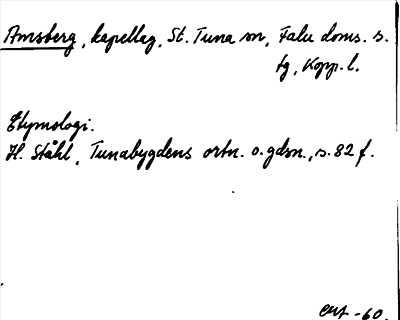 Amsberg, kapellag, St. Tuna sn, Falu doms. s.
tg, Kopp. l.
Etymologi.
H. Ståhl, Tunabygdens ortn. o. gdsn., s. 82 f.
-60.